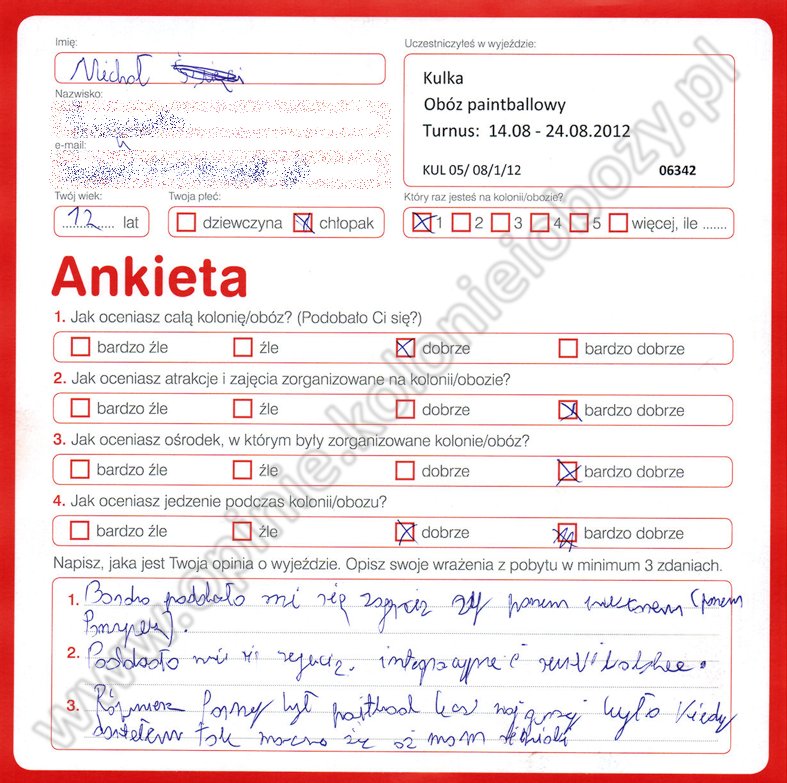 Imię:
Michał
Nazwisko:
e-mail:
Twój wiek:
12 lat
Twoja płeć:
dziewczyna chłopak
Uczestniczyłeś w wyjeździe:
Kulka
Obóz paintballowy
Turnus: 14.08 - 24.08.2012
KUL 05/ 08/1/12 06342
Który raz jesteś na kolonii/obozie?
1 2 3 4 5 więcej, ile .......
Ankieta
1. Jak oceniasz całą kolonię/obóz? (Podobało Ci się?)
bardzo źle źle dobrze bardzo dobrze
2. Jak oceniasz atrakcje i zajęcia zorganizowane na kolonii/obozie?
bardzo źle źle dobrze bardzo dobrze
3. Jak oceniasz ośrodek, w którym były zorganizowane kolonie/obóz?
bardzo źle źle dobrze bardzo dobrze
4. Jak oceniasz jedzenie podczas kolonii/obozu?
bardzo źle źle dobrze bardzo dobrze
Napisz, jaka jest Twoja opinia o wyjeździe. Opisz swoje wrażenia z pobytu w minimum 3 zdaniach.
1. Bardzo podobało mi się panem (panem
2. Podobało mi integracyjne
3. Również był było kiedy
tak mocno się
www.opinie.kolonieiobozy.pl